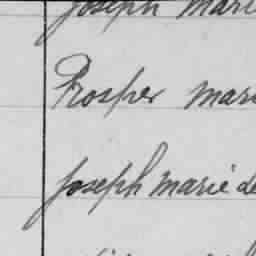 Joseph Marie
Prosper Mari
Joseph Marie de